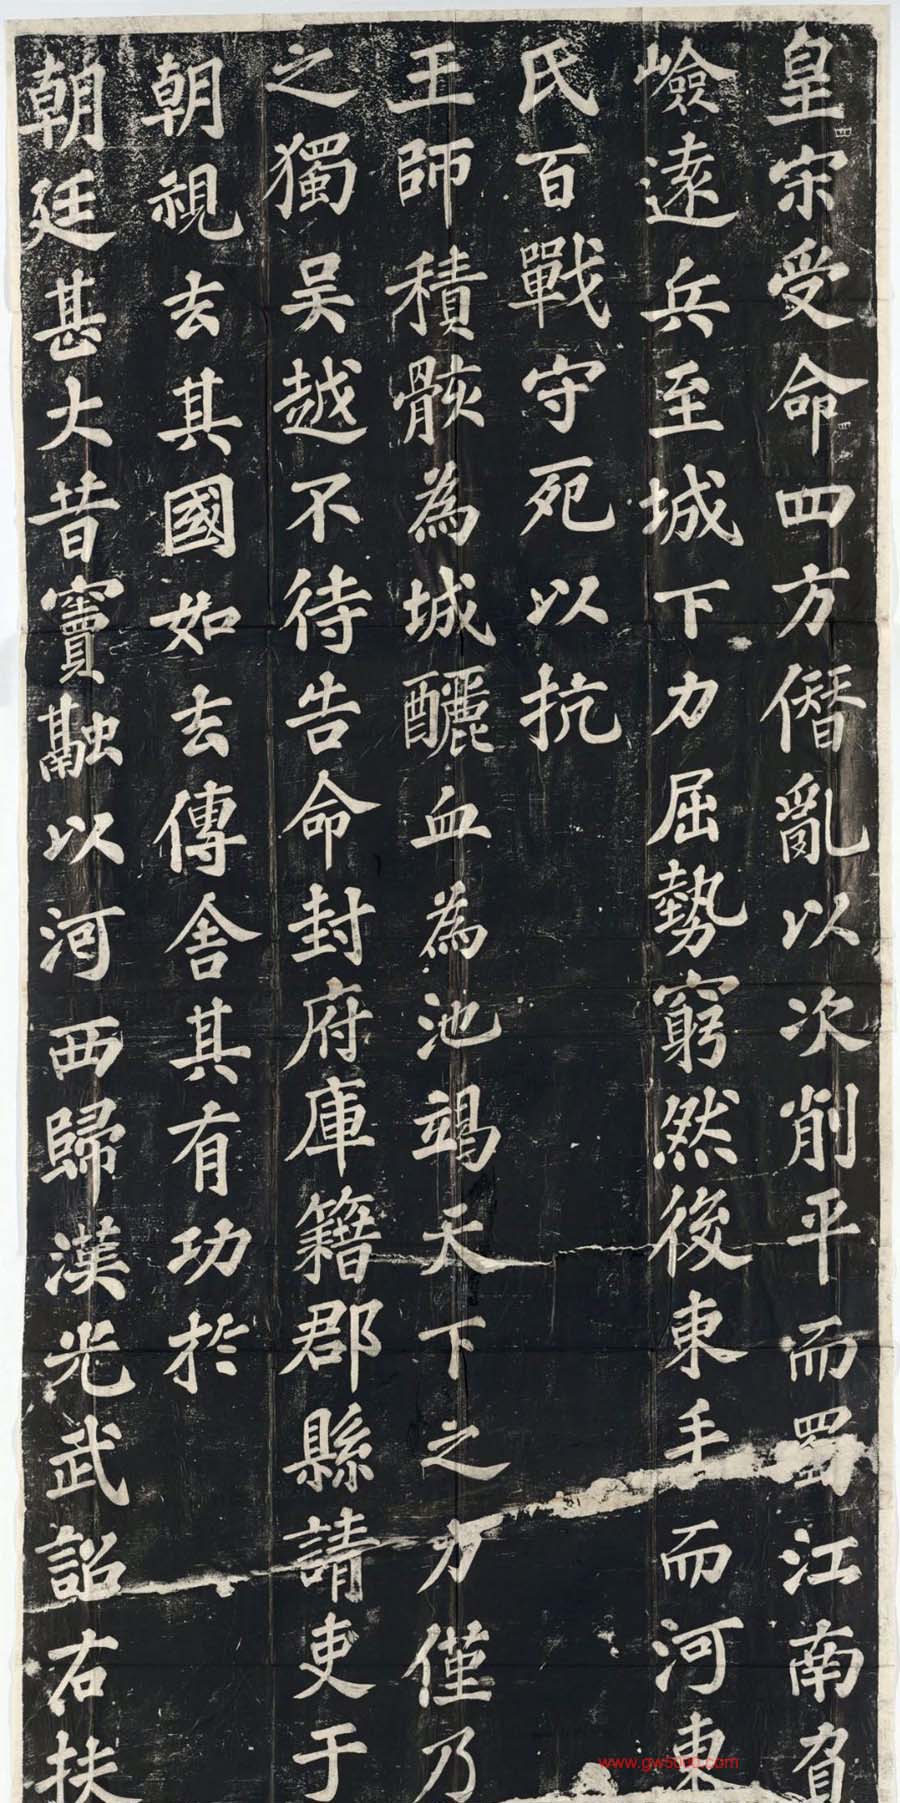 皇宋受命四方僭亂以次削平而蜀江南負
嶮遠兵至城下力屈勢窮然後束手而河東
氏百戰守死以抗
王師積骸為城釃血為池竭天下之力僅乃
之獨吳越不待告命封府庫籍郡縣請吏于
朝視去其國如去傳舍其有功於
朝廷甚大昔竇融以河西歸漢光武詔右扶
www.gw5000.com